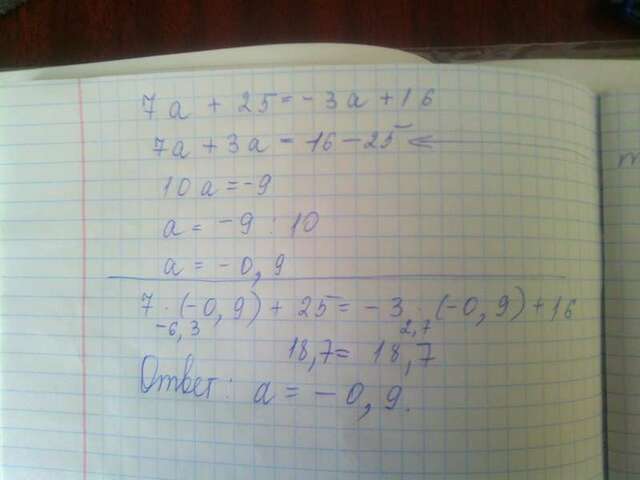 7a + 25 = -3a + 16
7a + 3a = 16 - 25 ←
10a = -9
a = -9 : 10
a = -0,9
7 · (-0,9) + 25 = -3 · (-0,9) + 16
-6,3 2,7
18,7 = 18,7
Ответ: a = -0,9.